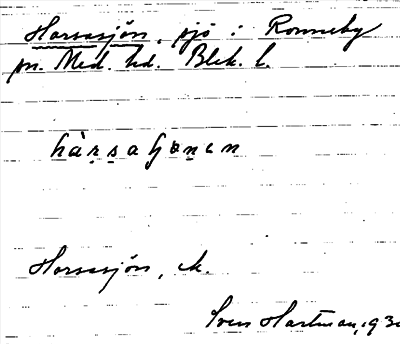 Horsasjön, sjö i Ronneby
sn. Med. hd. Blek. l.
hàṛṣaɧønen
Horsasjön, ek.
Sven Hartman, 193